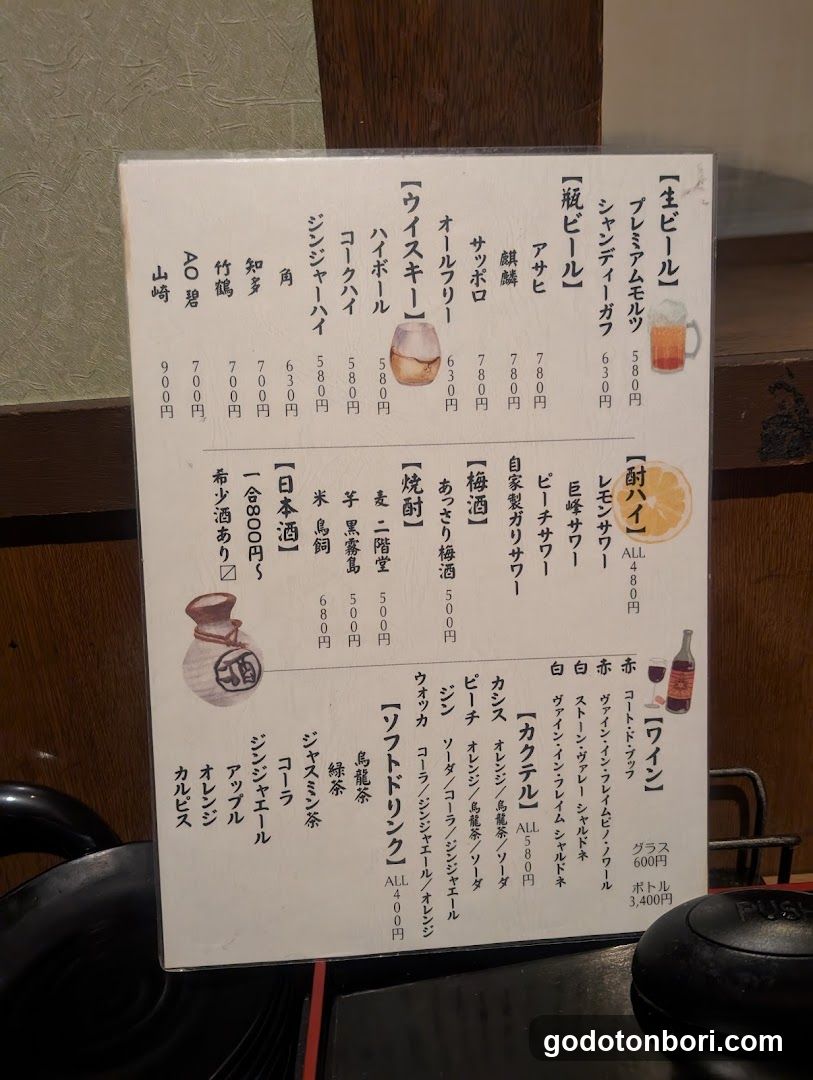 【生ビール】
プレミアムモルツ 580円
シャンディーガフ 630円
【瓶ビール】
アサヒ 780円
麒麟 780円
サッポロ 780円
オールフリー 630円
【ウイスキー】
ハイボール 580円
コークハイ 580円
ジンジャーハイ 580円
角 630円
知多 700円
竹鶴 700円
AO 碧 700円
山崎 900円
【酎ハイ】 ALL 480円
レモンサワー
巨峰サワー
ピーチサワー
自家製ガリサワー
【梅酒】
あっさり梅酒 500円
【焼酎】
麦 二階堂 500円
芋 黒霧島 500円
米 鳥飼 680円
【日本酒】
一合800円～
希少酒あり〼
酒
【ワイン】 グラス 600円 ボトル 3,400円
赤 コート・ド・ブッフ
赤 ヴァイン・イン・フレイムピノ・ノワール
白 ストーン・ヴァレー シャルドネ
白 ヴァイン・イン・フレイム シャルドネ
【カクテル】 ALL 580円
カシス オレンジ／烏龍茶／ソーダ
ピーチ オレンジ／烏龍茶／ソーダ
ジン ソーダ／コーラ／ジンジャエール
ウォッカ コーラ／ジンジャエール／オレンジ
【ソフトドリンク】 ALL 400円
烏龍茶
緑茶
ジャスミン茶
コーラ
ジンジャエール
アップル
オレンジ
カルピス
PUSH
godotonbori.com